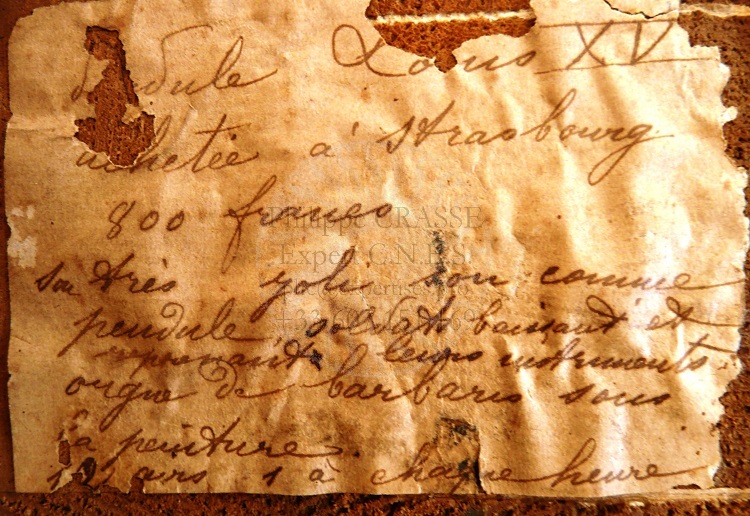 pendule Louis XV
achetée à Strasbourg
800 francs
son très yoli son comme
pendule soldats baissant et
reprenants leurs instruments
orgue de barbaris sous
la peinture.
12 airs 1 à chaque heure
Philippe CRASSE
Expert C.N.E.S.